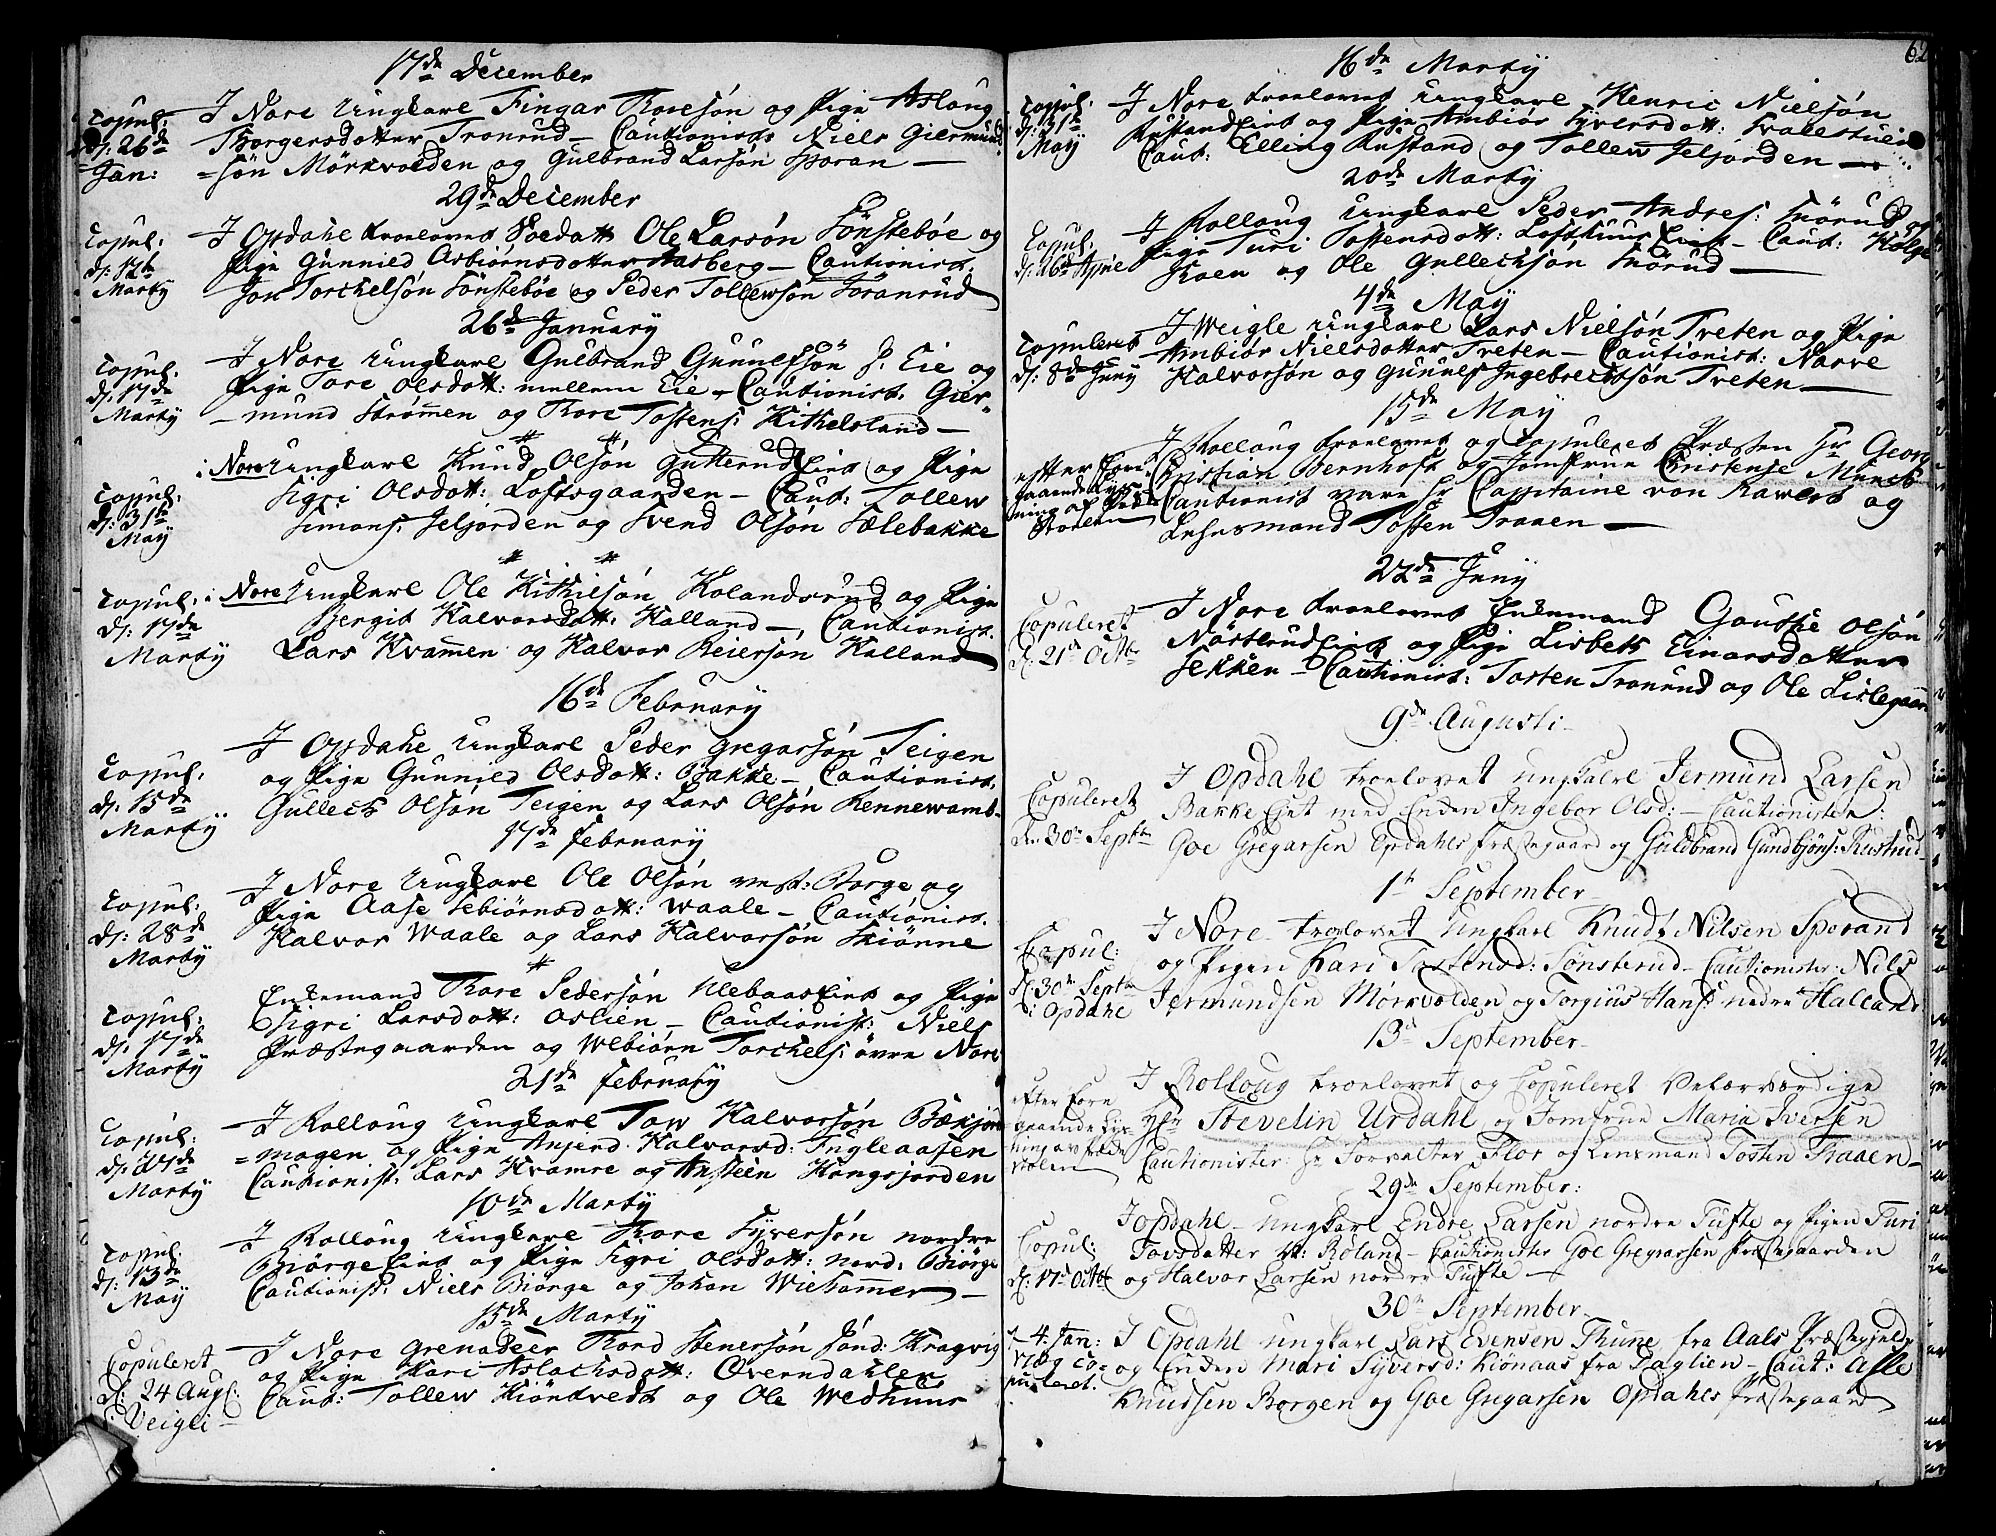 17de December
Copul: d: 26de Jan:
I Nore Ungkarl Fingar Thoresön og Pige Aslaug
Torgersdotter Tronrud – Cautionists Niels Giermund
=sön Mörkvolden og Gulbrand Larsön Sporan –
29de December
Copul: d: 12te Marty
I Opdahl troelovet Soldatt Ole Larsön Tönsteböe og
Pige Gunnied Asbiörnsdotter Aasberg – Cautionist.
Jon Torchelsön Tönsteböe og Peder Tollewsön Toranrud
26de January
Copul. d: 17de Marty
I Nore Ungkarl Gulbrand Gunnulfsön S. Eie og
Pige Tore Olsdott: mellem Eie – Cautionist. Gier=
=mund Strömen og Thore Tostens: Kithelsland –
Copul: d: 31te May
i Nore Ungkarl Knud Olsön Gutterud Eiet og Pige
Sigri Olsdott: Loftsgaarden – Caut: Tollew
Simons: Seljorden og Svend Olsön Sælebakke
Copul: d: 17de Marty
i Nore Ungkarl Ole Kithilsön Kolandsrud og Pige
Bergit Halvorsdott: Halland – Cautionist.
Lars Kvamen og Halvor Reiersön Halland
16de February
Copul: d: 15de Marty
I Opdahl Ungkarl Peder Gregarsön Teigen
og Pige Gunnied Olsdott: Bakke – Cautionist.
Gulleck Olsön Teigen og Lars Olsön Kennewamb.
17de February
Copul: d: 28de Marty
I Nore Ungkarl Ole Olsön vest: Borge og
Pige Aase Sebiörnsdott: Waale – Cautionist.
Halvor Waale og Lars Halvorsön Skiönne
Copul: d: 17de Marty
Enkemand Thore Pedersön Ulebaas Eiet og Pige
Sigri Larsdott: Oslien – Cautionist: Niels
Præstegaarden og Webiörn Torchels: övre Nore
21de February
Copul: d: 27de Marty
I Rolloug Ungkarl Tow Halvorsön Bækjor
=mogen og Pige Anjerd Halvorsd: Fugleaasen
Cautionist: Lars Kvamre og Anstein Kongsjorden
10de Marty
Copul: d: 13de May
I Rolloug Ungkarl Thore Syversön nordre
Biörge Eiet og Pige Sigri Olsdott: nord: Biörge
Cautionist: Niels Biörge og Johan Wiehamer –
15de Marty
Copuleret d: 24 Augs: i Veigli –
I Nore Grenadeer Thord Stenersön sönd: Kragvig
og Pige Kari Aslachsdott: Överndahlen
Caut: Tollew Kiönkvedt og Ole Wedhuus
62
16de Marty
Copul: d: 31te May
I Nore troelovet Ungkarl Henric Nielsön
Rustand Eiet og Pige Ambiör Syversdott: Traaestuen
Caut: Elling Rustand og Tollew Seljorden –
20de Marty
Copul: d: 26de Aprie
I Rolloug Ungkarl Peder Andres: Mörud og
Pige Turi Tostensdott: Lofthuus Eiet – Caut: Helge
Skoen og Ole Gullechsön Mörud –
4de May
Copuleret d: 8de Juny
I Weigle Ungkarl Lars Nielsön Treten og Pige
Ambiör Nielsdotter Treten – Cautionist: Narve
Halvorsön og Gunnes Ingebrechtsön Treten –
15de May
efter foregaaende
I Rolloug troelovet og Copuleret Præsten Hr Georg
Christian Bernhoft og Jomfrue Christense Munch
Cautionist vare Hr Capitaine von Kawert og
Lehnsmand Tosten Traaen –
22de Juny
Copuleret d. 21de Octbr
I Nore troelovet Enkemand Goutke Olsön
Nörsterud Eiet og Pige Lisbeth Einarsdotter
Sekken – Cautionist: Tosten Tronrud og Ole Lislegaarn
9de Augusti –
Copuleret d. 30te Septbr
I Opdahl troelovet Ungkalre Jermund Larsen
Bakke Ejet med Enken Ingebor Olsd: – Cautionister:
Goe Gregarsen Opdahls Præstegaard og Guldbrand Gundbjöns: Rustud –
1te September
Copul: d: 30te Septbr i Opdahl
I Nore – troelovet Ungkarl Knudt Nilsen Sporand
og Pigen Kari Tostensd: Tönsterud – Cautionister: Nils
Jermundsen Mörkvolden og Torgius Hans: nedre Halland
13de September
efter foregaaende
I Rolloug troelovet og Copuleret Velærværdige
Hr Stevelin Urdahl og Jomfrue Maria Iversen
Cautionister: Hr Forvalter Flor og Lensmand Tosten Traaen –
29de September:
Copul: d: 17de Octbr
I Opdahl – Ungkarl Endre Larsen nordre Tufte og Pigen Turi
Tovsdatter St: Röland – Cautionister Goe Gregarsen Præstegaarden
og Halvor Larsen nordre Tufte –
30te September
4. Jan: copuleret.
I Opdahl Ungkarl Lars Evensen Thune fra Aals Præstegjeld
og Enken Mari Syversd: Kiönaas fra Daglien – Caut: Asle
Knudsen Borgen og Goe Gregarsen Opdahls Præstegaard